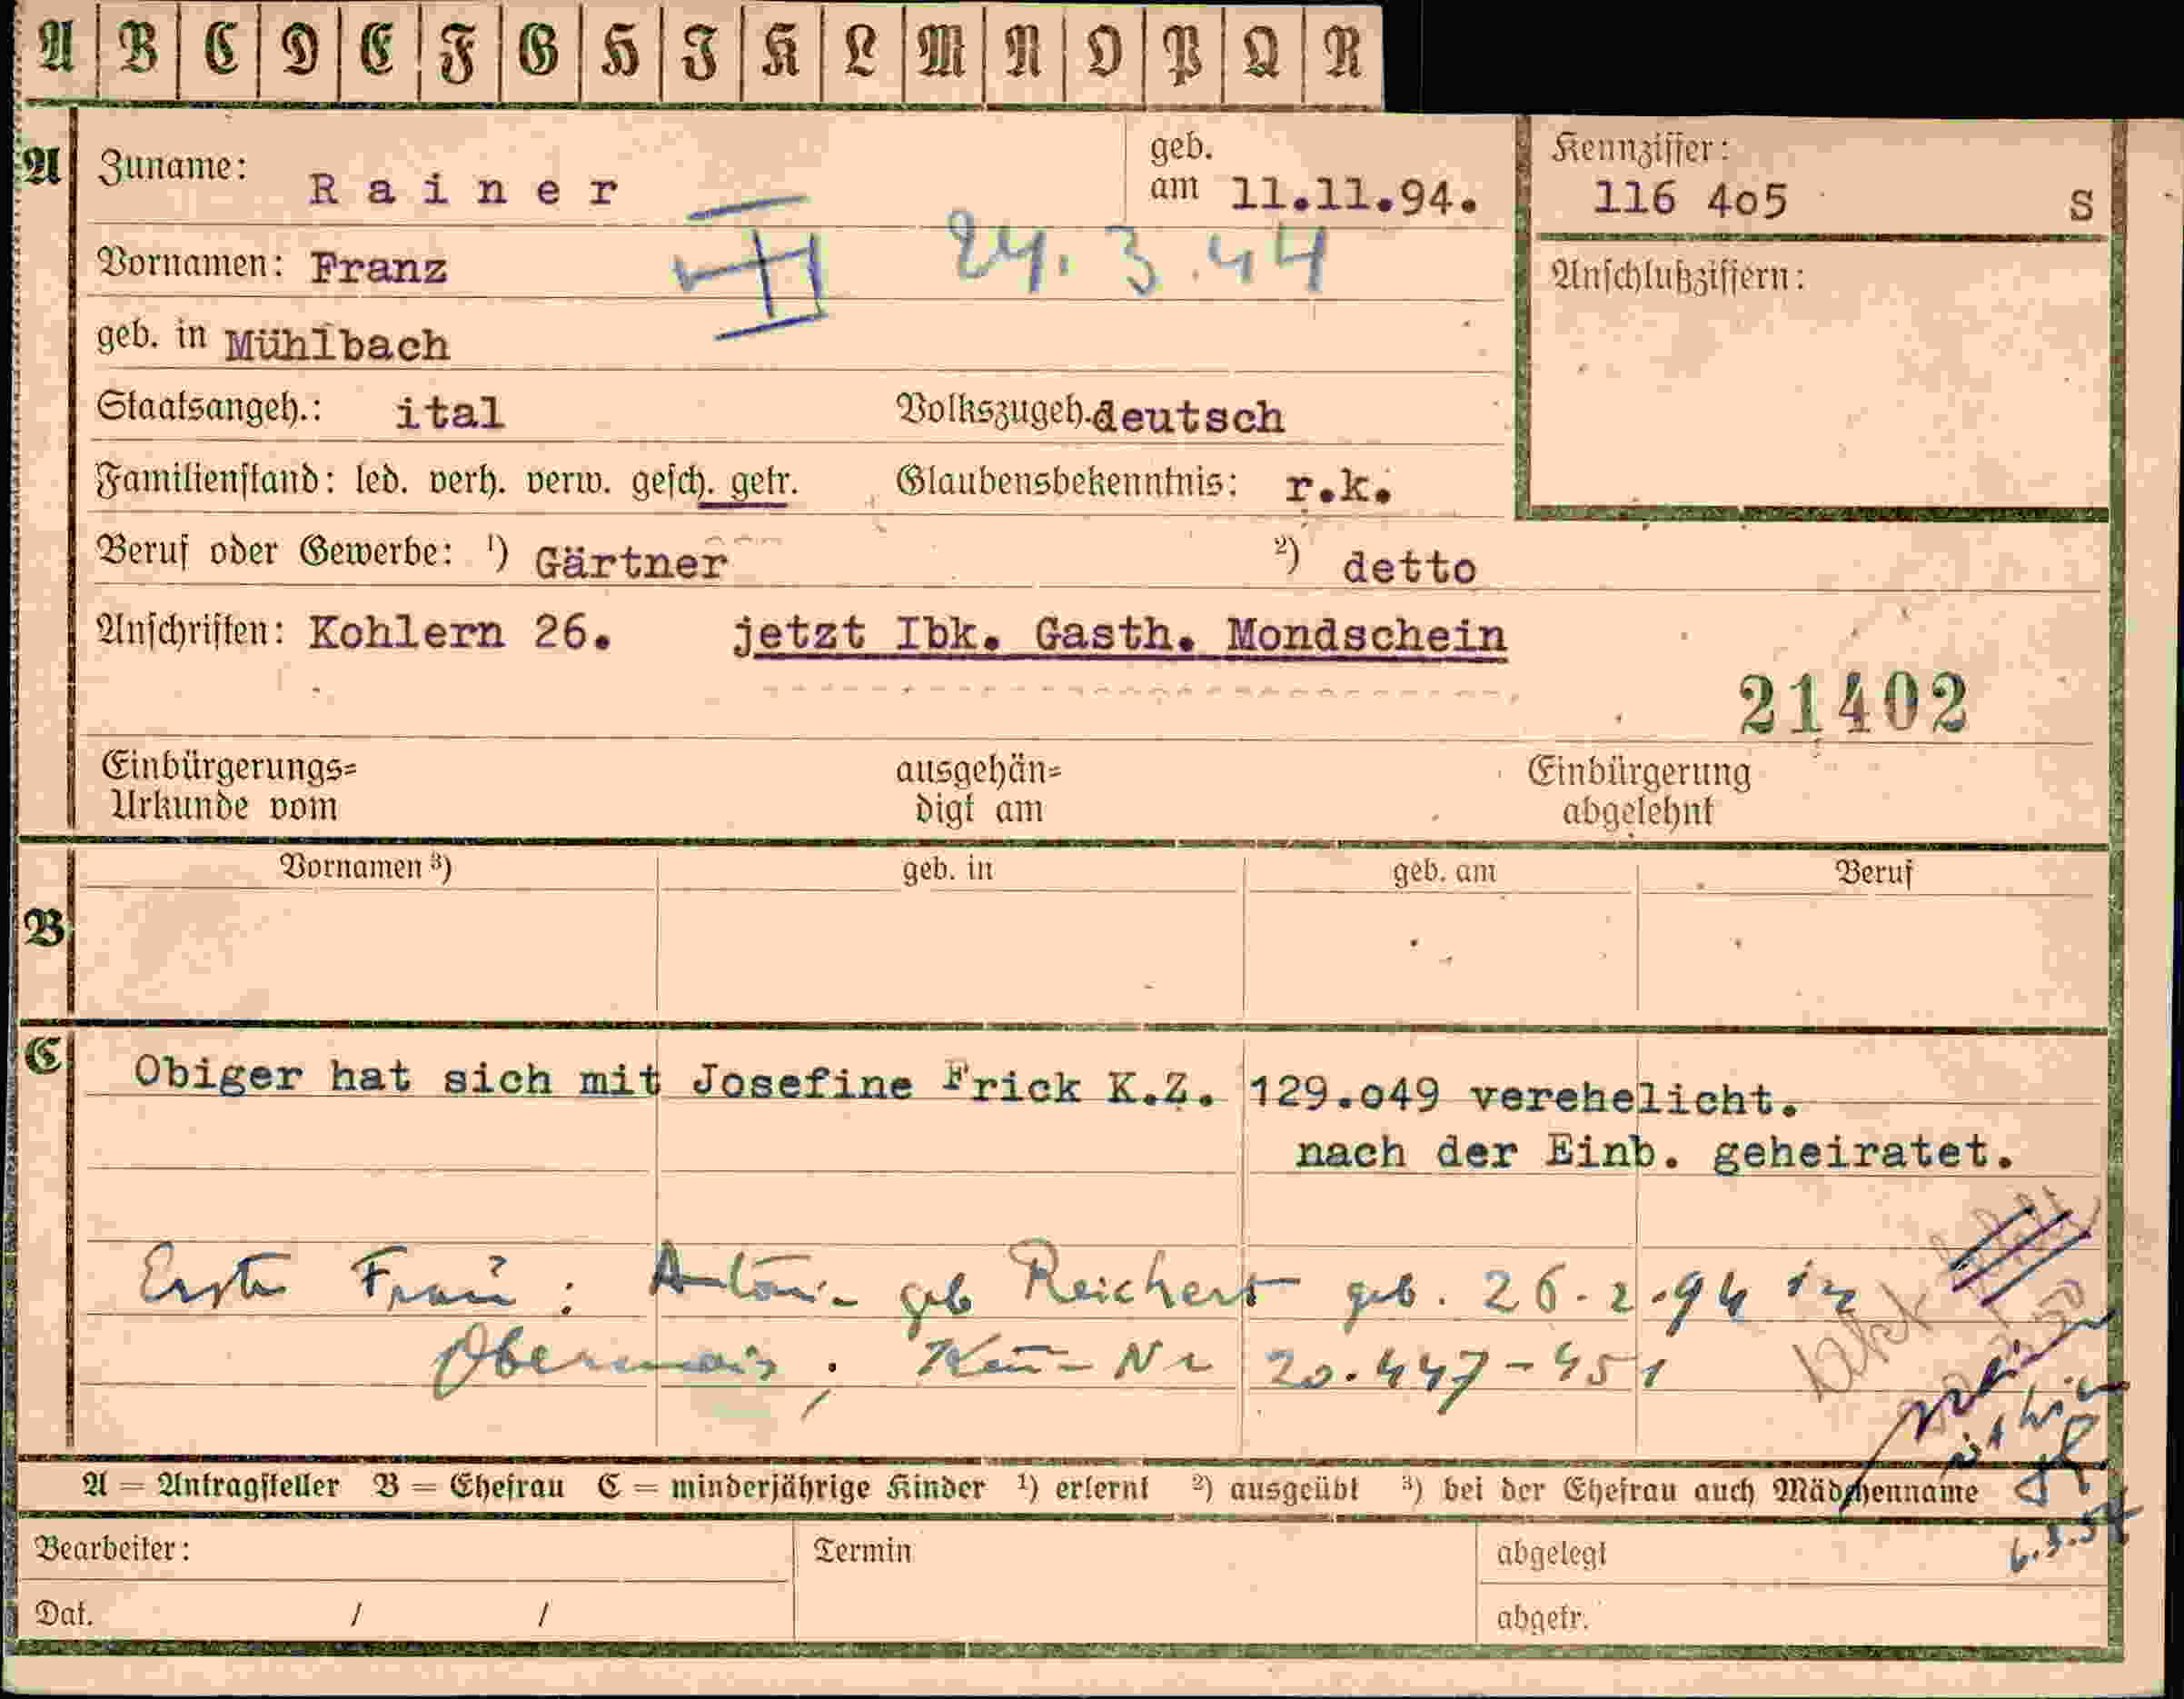 A B C D E F G H I K L M N O P Q R
A Zuname: Rainer geb. am 11.11.94. Kennziffer: 116 4o5 S
Vornamen: Franz II 24.3.44 Anschlußziffern:
geb. in Mühlbach
Staatsangeh.: ital Volkszugeh. deutsch
Familienstand: led. verh. verw. gesch. getr. Glaubensbekenntnis: r.k.
Beruf oder Gewerbe: ¹) Gärtner ²) detto
Anschriften: Kohlern 26. jetzt Ibk. Gasth. Mondschein
21402
Einbürgerungs= ausgehän= Einbürgerung
Urkunde vom digt am abgelehnt
Vornamen ³) geb. in geb. am Beruf
B
C Obiger hat sich mit Josefine Frick K.Z. 129.o49 verehelicht.
nach der Einb. geheiratet.
Erste Frau: Antonia geb Reichert geb. 26.2.94 in
Obermais; Kenn-Nr 20.447-451
A = Antragsteller B = Ehefrau C = minderjährige Kinder ¹) erlernt ²) ausgeübt ³) bei der Ehefrau auch Mädchenname
6.3.54
Bearbeiter: Termin abgelegt
Dat. / / abgetr.